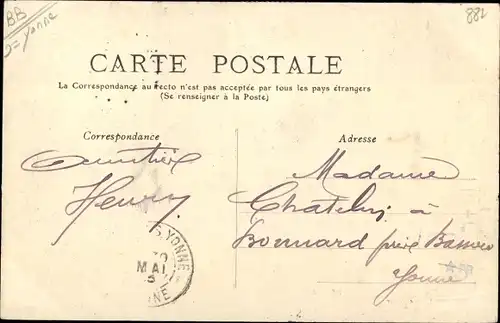 BB
Yonne
882
CARTE POSTALE
La Correspondance au recto n'est pas acceptée par tous les pays étrangers
(Se renseigner à la Poste)
Correspondance
Adresse
Amitiés
Henry
Madame
à
Bonnard près Bassou
Yonne
YONNE
MAI